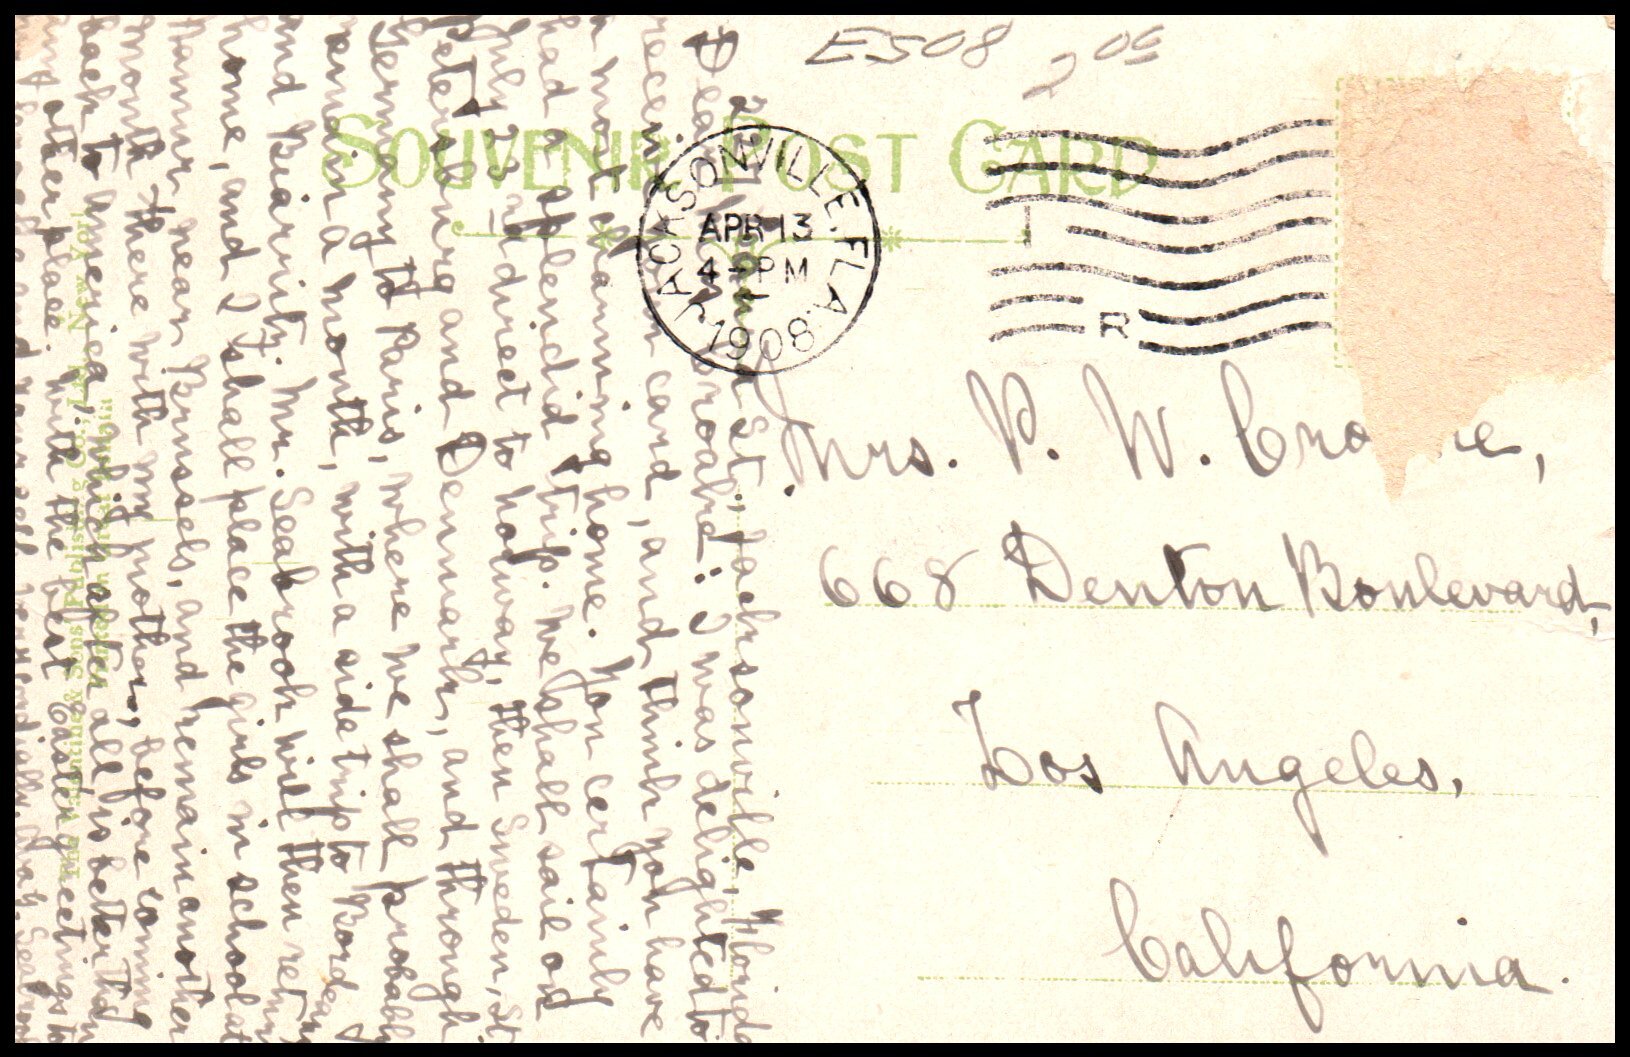 E508
2 05
SOUVENIR POST CARD
JACKSONVILLE, FLA.
APR 13
4-PM
1908
R
Mrs. P. W. Cra
668 Denton Boulevard,
Los Angeles,
California.
St., Jacksonville, Florida
Dear Mrs. : I was delighted to
receive your card, and think you have
a most charming home. You certainly
had a splendid trip. We shall sail on
July 23rd direct to Norway, then Sweden, St.
Petersburg and Denmark, and through
Germany to Paris, where we shall probably
remain a month, with a side trip to Bordeaux
and Biarritz. Mr. Seabrook will then return
home, and I shall place the girls in school at
Namur near Brussels, and remain another
month there with my mother, before coming
back to America, which after all is better than
any other place. With the best Easter greetings to
and yourself, very cordially,
The Valentine & Sons Publishing Co., Ltd., New York
Printed in Great Britain